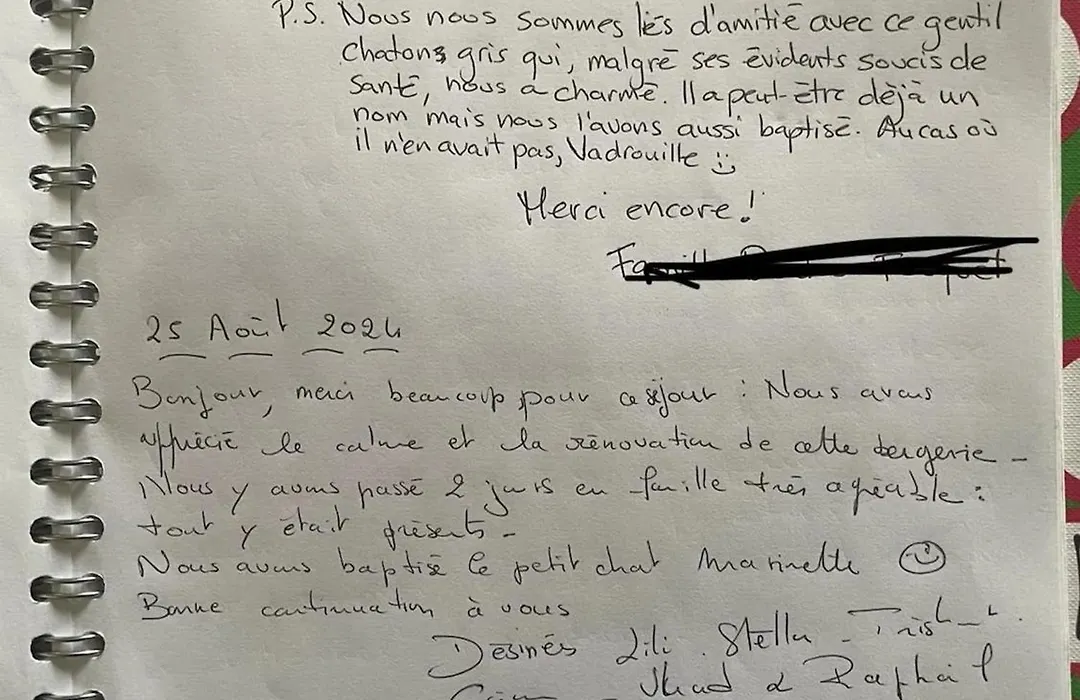 P.S. Nous nous sommes liés d'amitié avec ce gentil
chatons gris qui, malgré ses évidents soucis de
santé, nous a charmé. Il a peut-être déjà un
nom mais nous l'avons aussi baptisé. Au cas où
il n'en avait pas, Vadrouille :)
Merci encore !
25 Août 2024
Bonjour, merci beaucoup pour ce séjour : Nous avons
apprécié le calme et la rénovation de cette bergerie -
Nous y avons passé 2 jours en famille très agréable :
tout y était présents -
Nous avons baptisé le petit chat Marinette ☺
Bonne continuation à vous
Désinés Lili . Stella -
& Raphaël